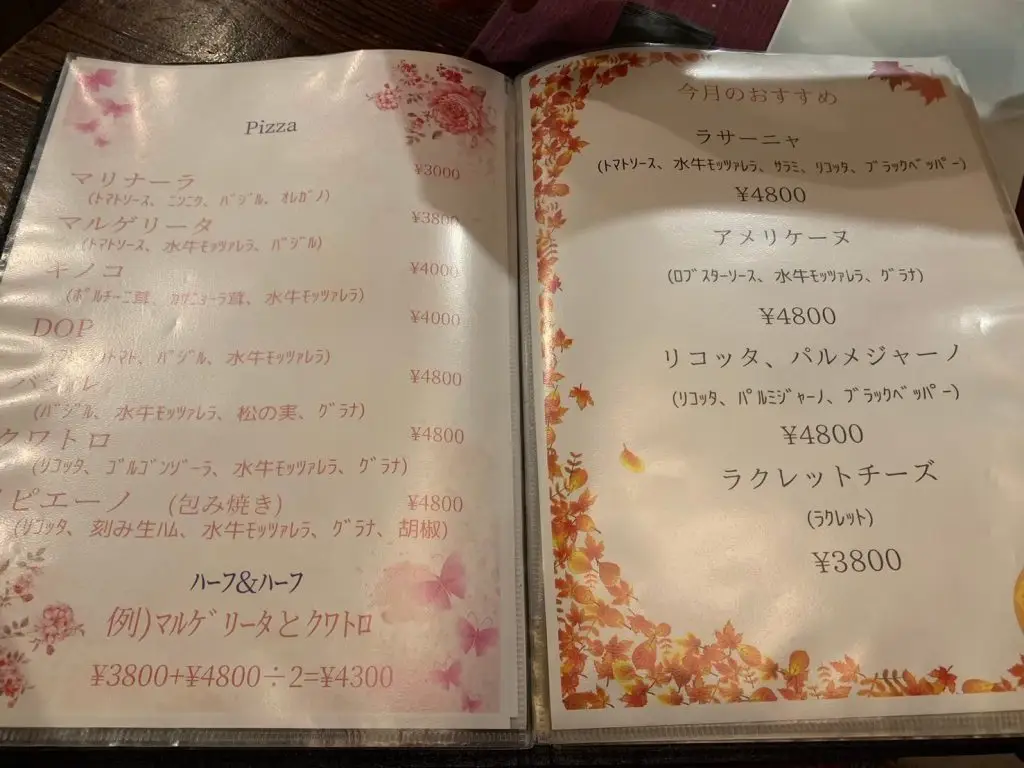 Pizza
マリナーラ ¥3000
(ﾄﾏﾄｿｰｽ、ﾆﾝﾆｸ、ﾊﾞｼﾞﾙ、ｵﾚｶﾞﾉ)
マルゲリータ ¥3800
(ﾄﾏﾄｿｰｽ、水牛ﾓｯﾂｧﾚﾗ、ﾊﾞｼﾞﾙ)
キノコ ¥4000
(ﾎﾟﾙﾁｰﾆ茸、ｶｻﾆｮｰﾗ茸、水牛ﾓｯﾂｧﾚﾗ)
DOP ¥4000
ﾄﾏﾄ、ﾊﾞｼﾞﾙ、水牛ﾓｯﾂｧﾚﾗ)
¥4800
(ﾊﾞｼﾞﾙ、水牛ﾓｯﾂｧﾚﾗ、松の実、ｸﾞﾗﾅ)
クワトロ ¥4800
(ﾘｺｯﾀ、ｺﾞﾙｺﾞﾝｿﾞｰﾗ、水牛ﾓｯﾂｧﾚﾗ、ｸﾞﾗﾅ)
ピエーノ (包み焼き) ¥4800
(ﾘｺｯﾀ、刻み生ﾊﾑ、水牛ﾓｯﾂｧﾚﾗ、ｸﾞﾗﾅ、胡椒)
ﾊｰﾌ&ﾊｰﾌ
例)ﾏﾙｹﾞﾘｰﾀとｸﾜﾄﾛ
¥3800+¥4800÷2=¥4300
今月のおすすめ
ラザーニャ
(ﾄﾏﾄｿｰｽ、水牛ﾓｯﾂｧﾚﾗ、ｻﾗﾐ、ﾘｺｯﾀ、ﾌﾞﾗｯｸﾍﾟｯﾊﾟｰ)
¥4800
アメリケーヌ
(ﾛﾌﾞｽﾀｰｿｰｽ、水牛ﾓｯﾂｧﾚﾗ、ｸﾞﾗﾅ)
¥4800
リコッタ、パルメジャーノ
(ﾘｺｯﾀ、ﾊﾟﾙﾐｼﾞｬｰﾉ、ﾌﾞﾗｯｸﾍﾟｯﾊﾟｰ)
¥4800
ラクレットチーズ
(ﾗｸﾚｯﾄ)
¥3800